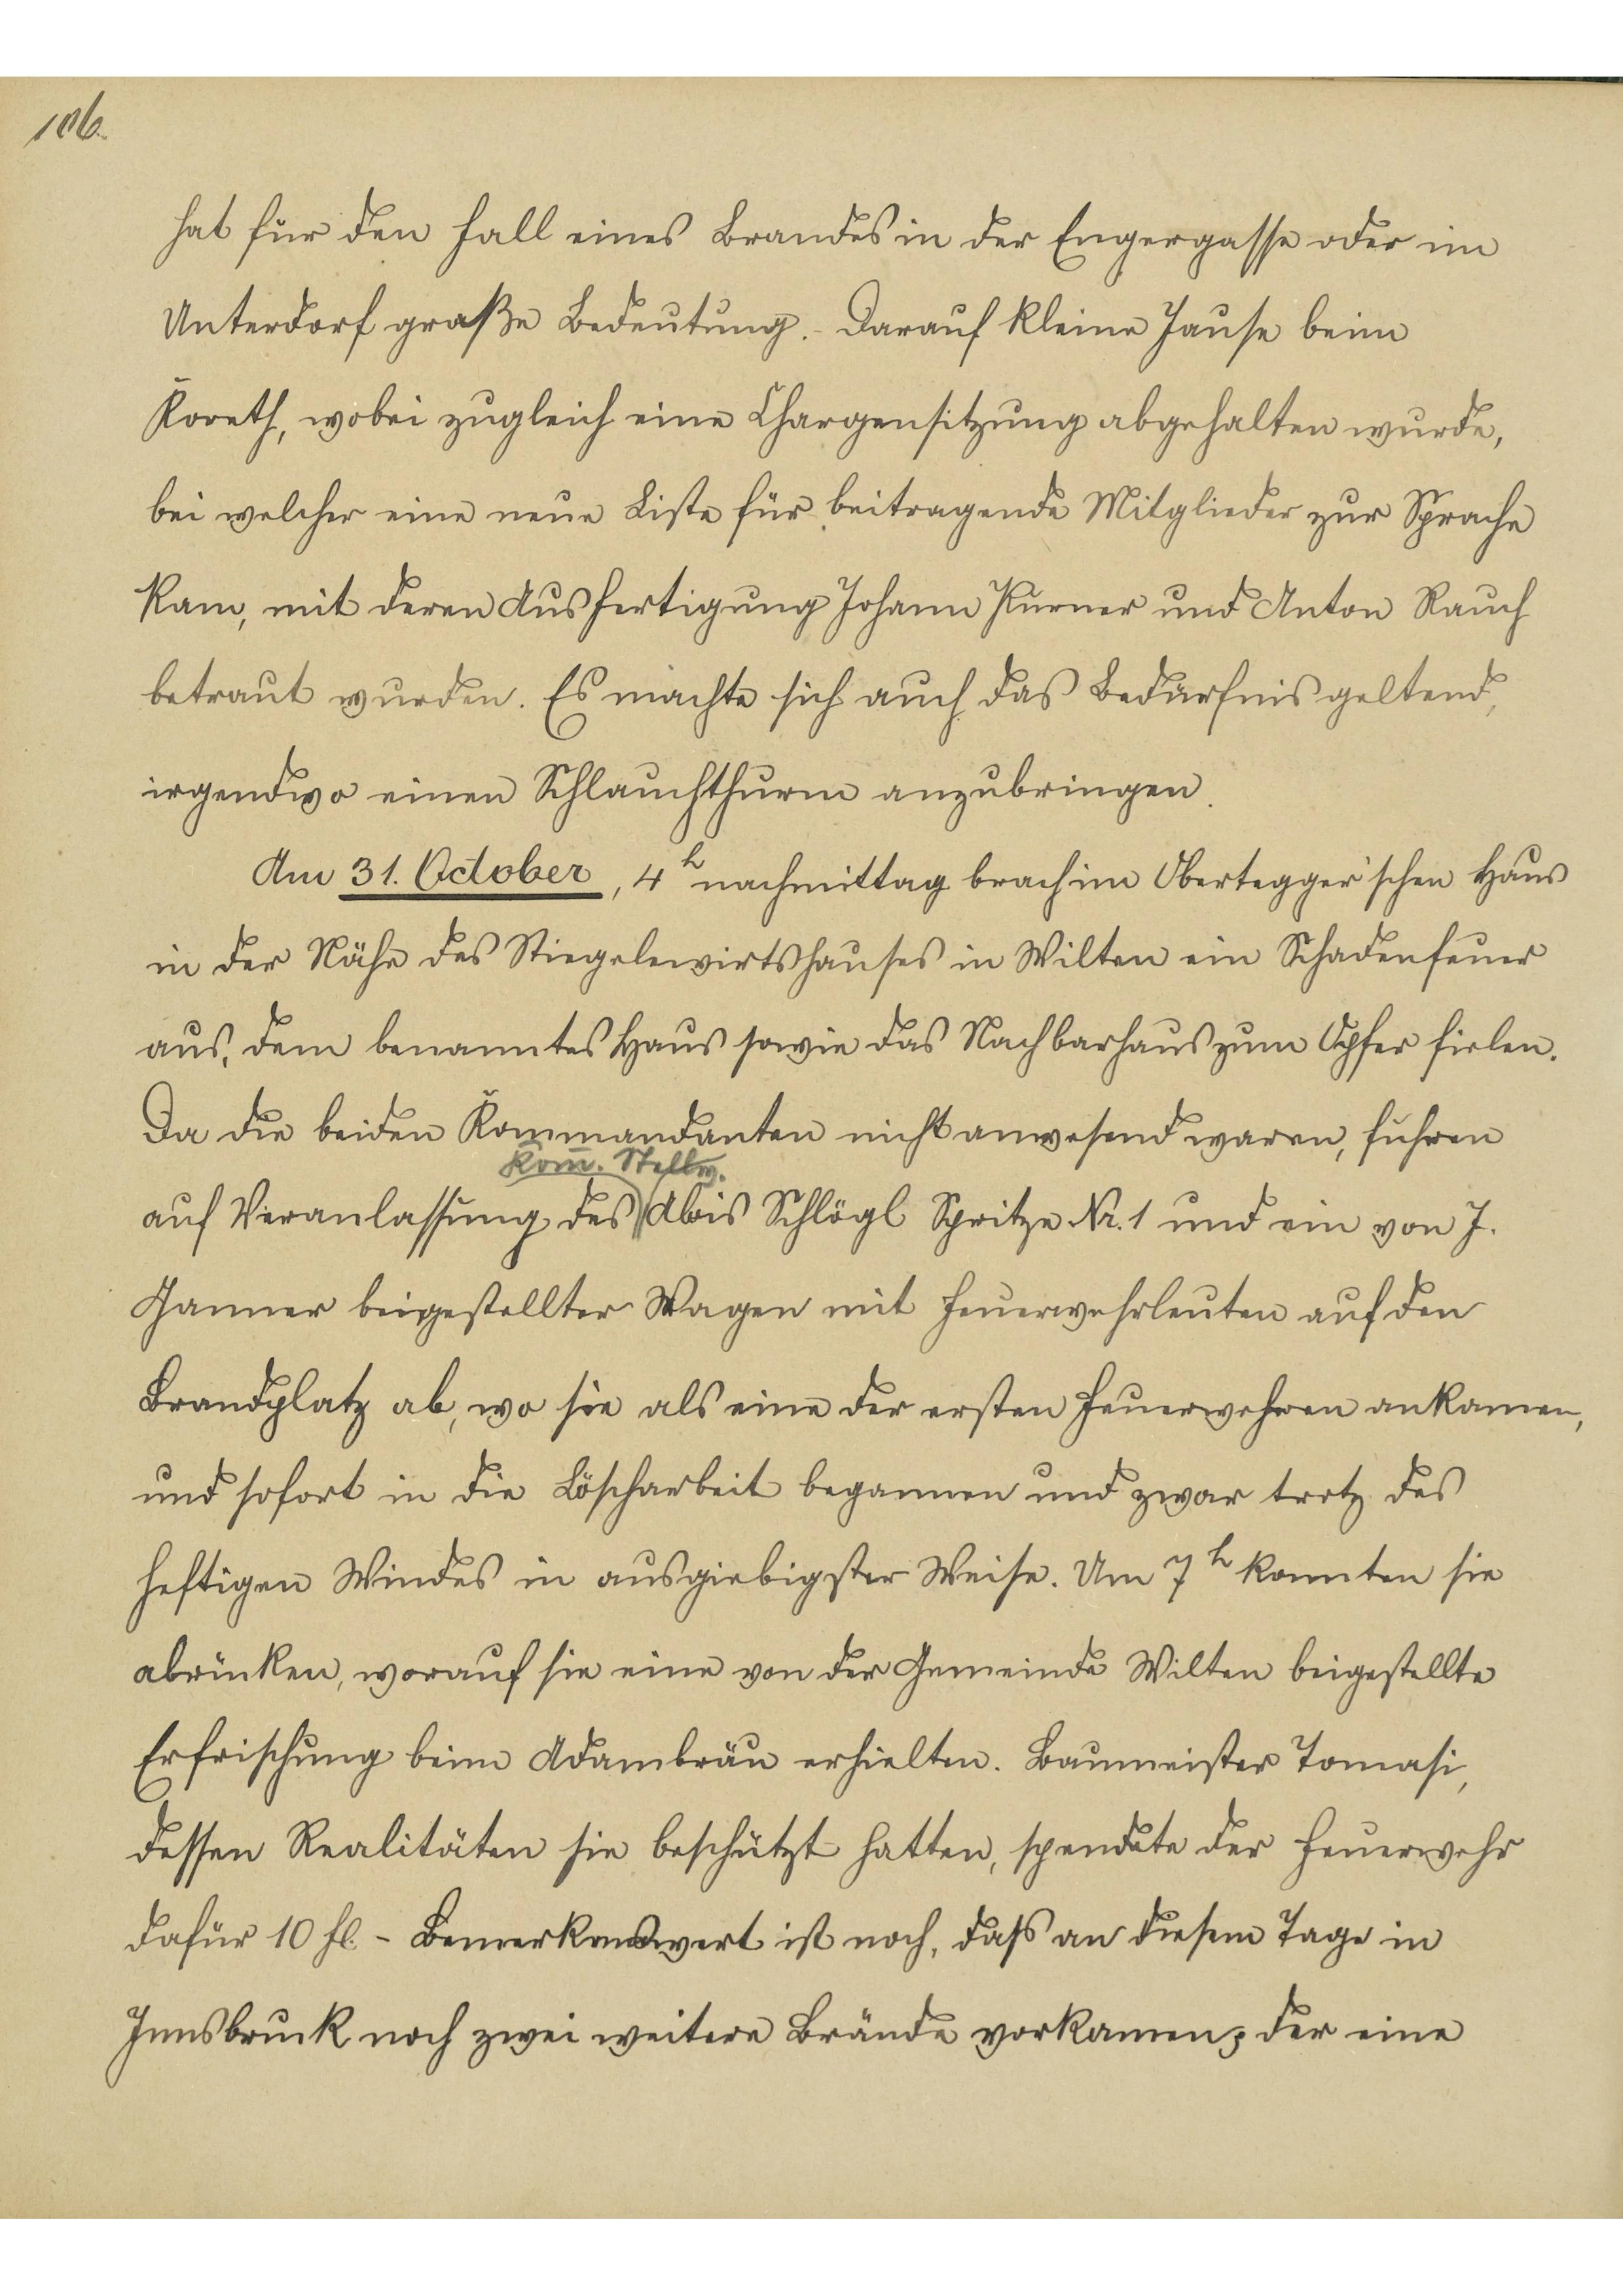 106.
hat für den Fall eines Brandes in der Engergasse oder im
Unterdorf große Bedeutung. Darauf kleine Jause beim
Koreth, wobei zugleich eine Chargensitzung abgehalten wurde,
bei welcher eine neue Liste für beitragende Mitglieder zur Sprache
kam, mit deren Ausfertigung Johann Purner und Anton Rauch
betraut wurden. Es machte sich auch das Bedürfnis geltend,
irgendwo einen Schlauchthurm anzubringen.
Am 31. October, 4h nachmittag brach im Obertegger'schen Haus
in der Nähe des Stiegelewirtshauses in Wilten ein Schadenfeuer
aus, dem benanntes Haus sowie das Nachbarhaus zum Opfer fielen.
Da die beiden Kommandanten nicht anwesend waren, fuhren
Kom̄. Stellv.
auf Veranlassung des Alois Schlögl Spritze Nr. 1 und ein von J.
Ganner beigestellter Wagen mit Feuerwehrleuten auf den
Brandplatz ab, wo sie als eine der ersten Feuerwehren ankamen,
und sofort in die Löscharbeit begannen und zwar trotz des
heftigen Windes in ausgiebigster Weise. Um 7h konnten sie
abrücken, worauf sie eine von der Gemeinde Wilten beigestellte
Erfrischung beim Adambräu erhielten. Baumeister Tomasi,
dessen Realitäten sie beschützt hatten, spendete der Feuerwehr
dafür 10 fl. - Bemerkenswert ist noch, daß an diesem Tage in
Innsbruck noch zwei weitere Brände vorkamen; der eine